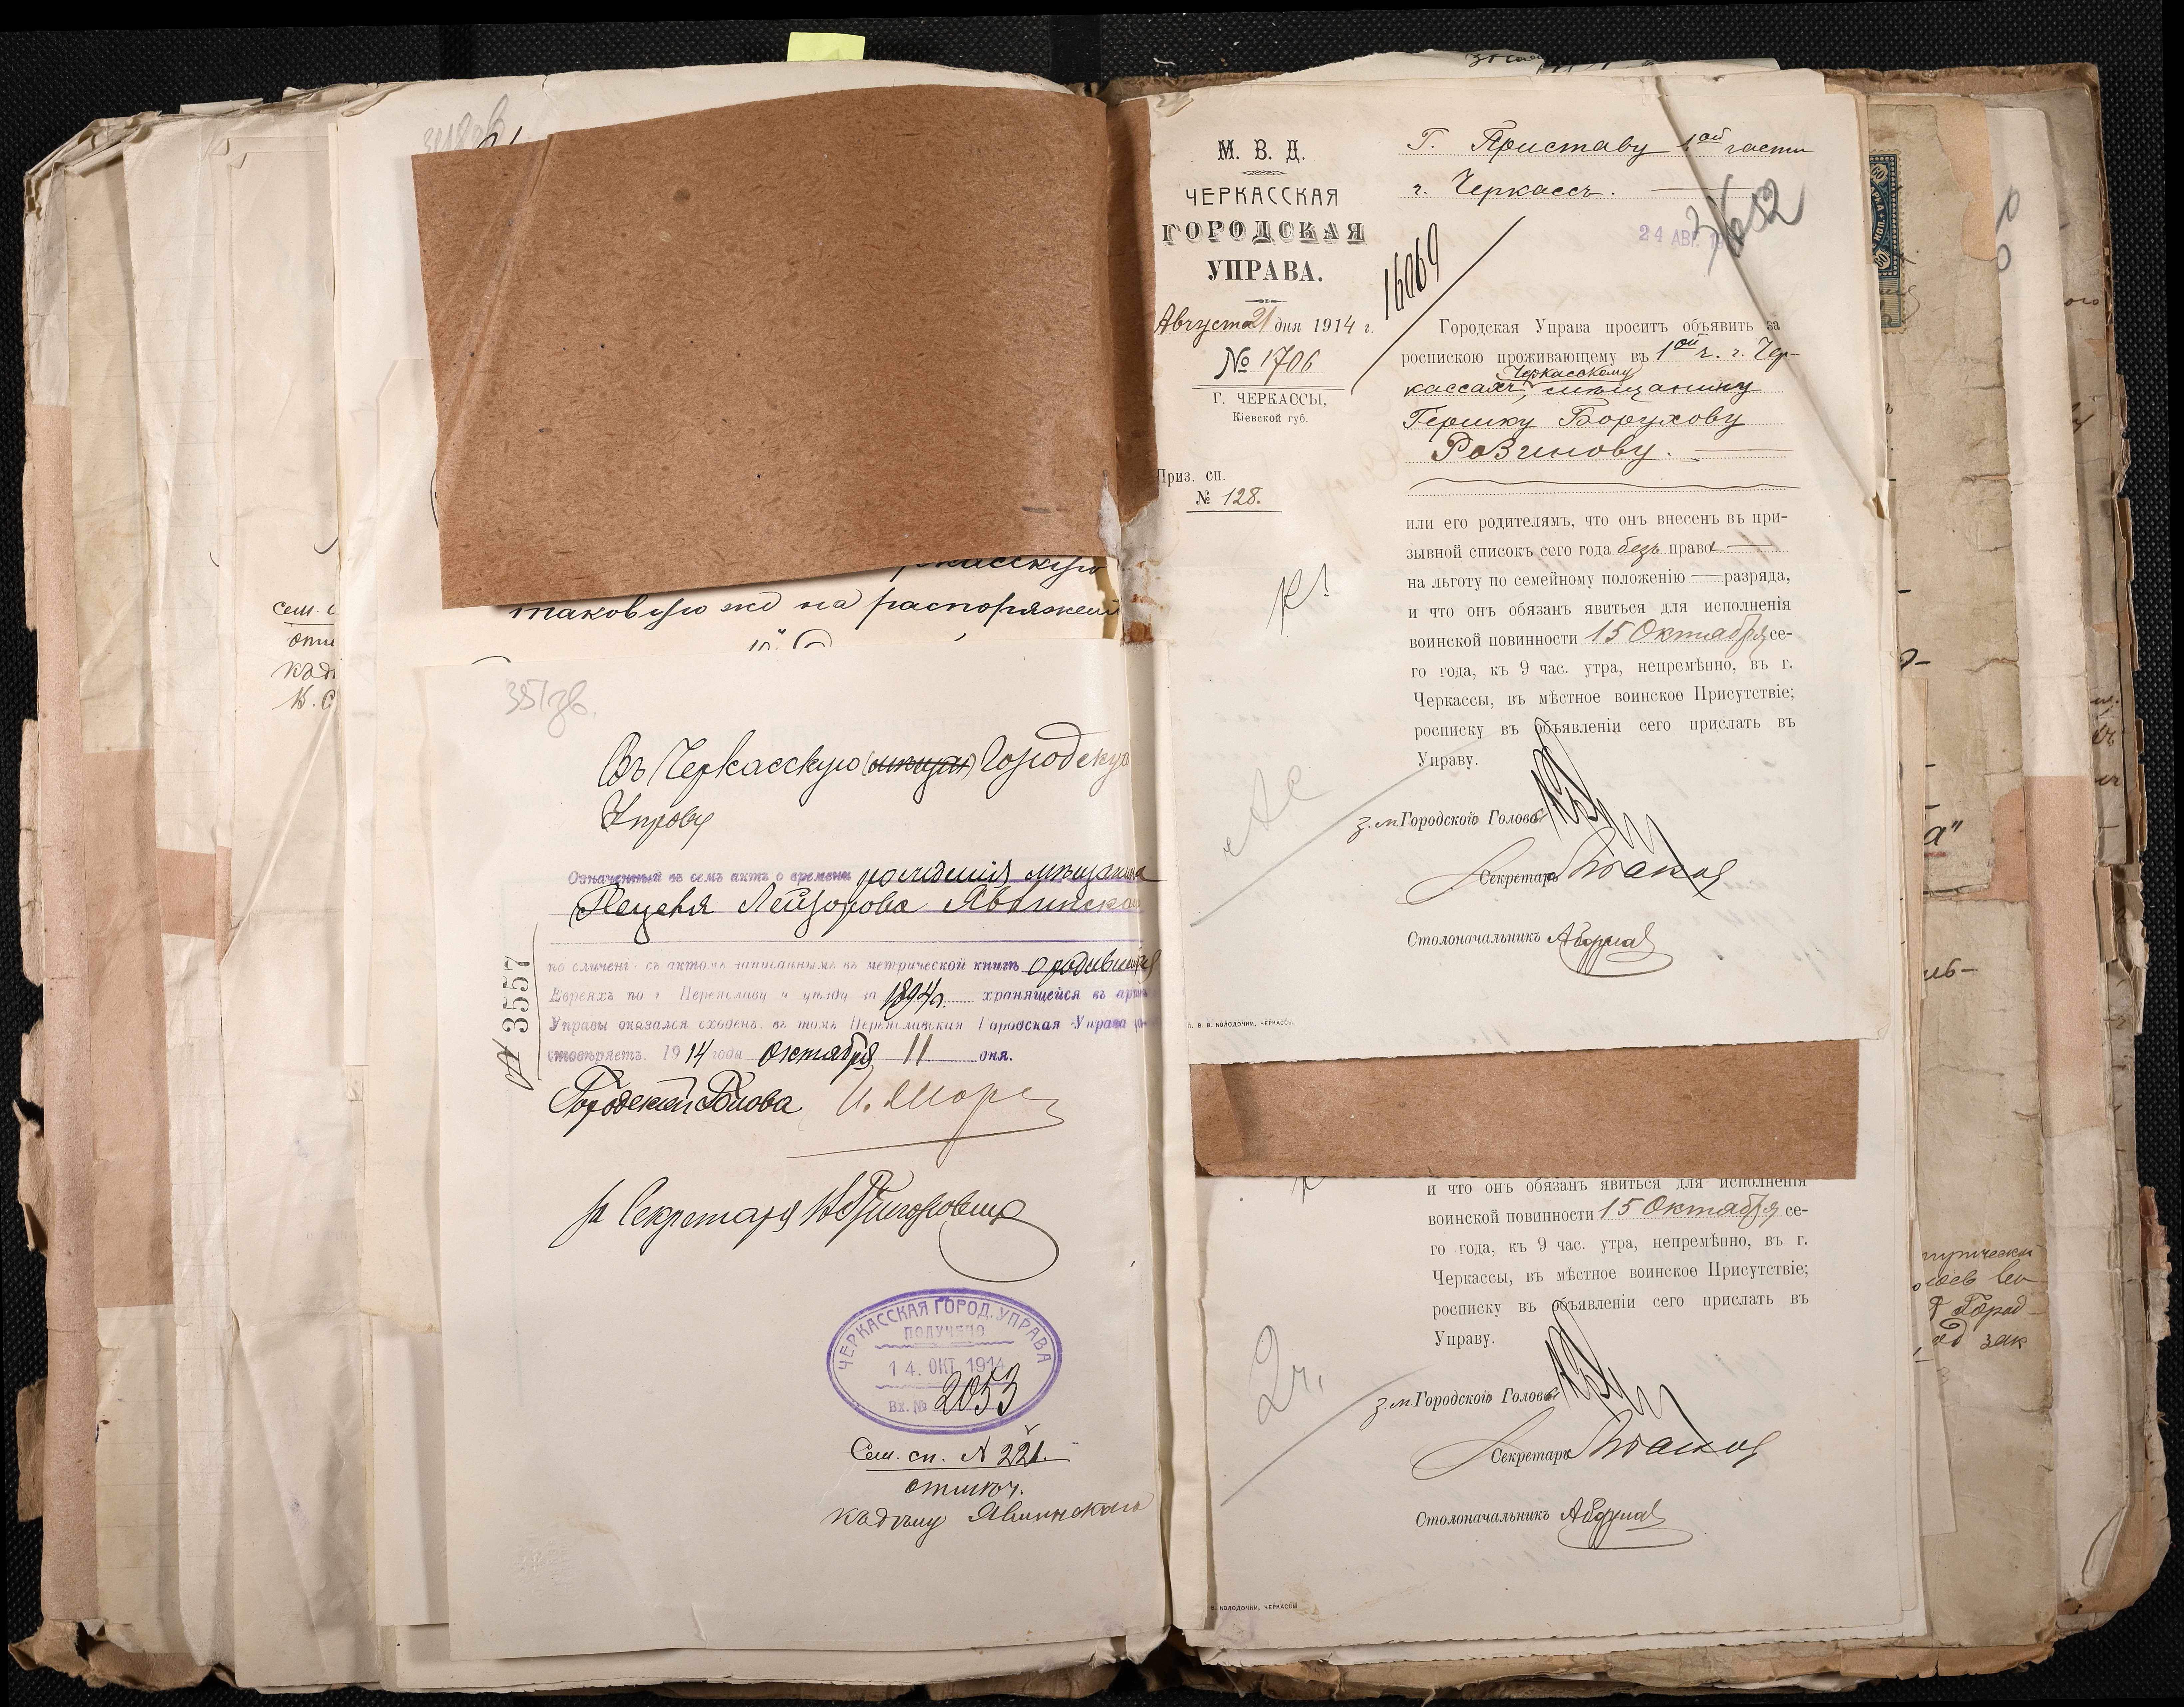 таковую же на распоряжен
351 зв.
Въ Черкасскую (мещан) Городскую
Управу
Означенный въ семъ актъ о времени рожденія мѣщанина
Лейзорова Явлинска
по сличенію съ актомъ записаннымъ въ метрической книгѣ о родившихся
Евреяхъ по г. Переяславу и уѣзду за 1894 г. хранящейся въ архив
Управы оказался сходенъ въ томъ Переяславская Городская Управа удо-
стовѣряетъ. 1914 года октября 11 дня.
№ 3557
Городской Голова
за Секретаря
ЧЕРКАССКАЯ ГОРОД. УПРАВА
ПОЛУЧЕНО
14. ОКТ. 1914
Вх. № 2053
Сем. сп. № 221.
отмѣч.
Явлинскаго
сем. с
К. С
М. В. Д.
ЧЕРКАССКАЯ
ГОРОДСКАЯ
УПРАВА.
Августа 21 дня 1914 г.
№ 1706
Г. ЧЕРКАССЫ,
Кіевской губ.
Приз. сп.
№ 128.
Г. Приставу 1ой части
г. Черкассъ.
24 АВГ.
16069
Городская Управа проситъ объявить за
роспискою проживающему въ 1ой ч. г. Чер-
кассахъ, Черкасскому мѣщанину
Гершку Борухову
Розинову.
или его родителямъ, что онъ внесенъ въ при-
зывной списокъ сего года безъ права
на льготу по семейному положенію — разряда,
и что онъ обязанъ явиться для исполненія
воинской повинности 15 Октября се-
го года, къ 9 час. утра, непремѣнно, въ г.
Черкассы, въ мѣстное воинское Присутствіе;
росписку въ объявленіи сего прислать въ
Управу.
з. м. Городского Головы
Секретарь
Столоначальникъ
В. КОЛОДОЧКИ, ЧЕРКАССЫ
и что онъ обязанъ явиться для исполненія
воинской повинности 15 Октября се-
го года, къ 9 час. утра, непремѣнно, въ г.
Черкассы, въ мѣстное воинское Присутствіе;
росписку въ объявленіи сего прислать въ
Управу.
2 ч.
з. м. Городского Головы
Секретарь
Столоначальникъ
КОЛОДОЧКИ, ЧЕРКАССЫ